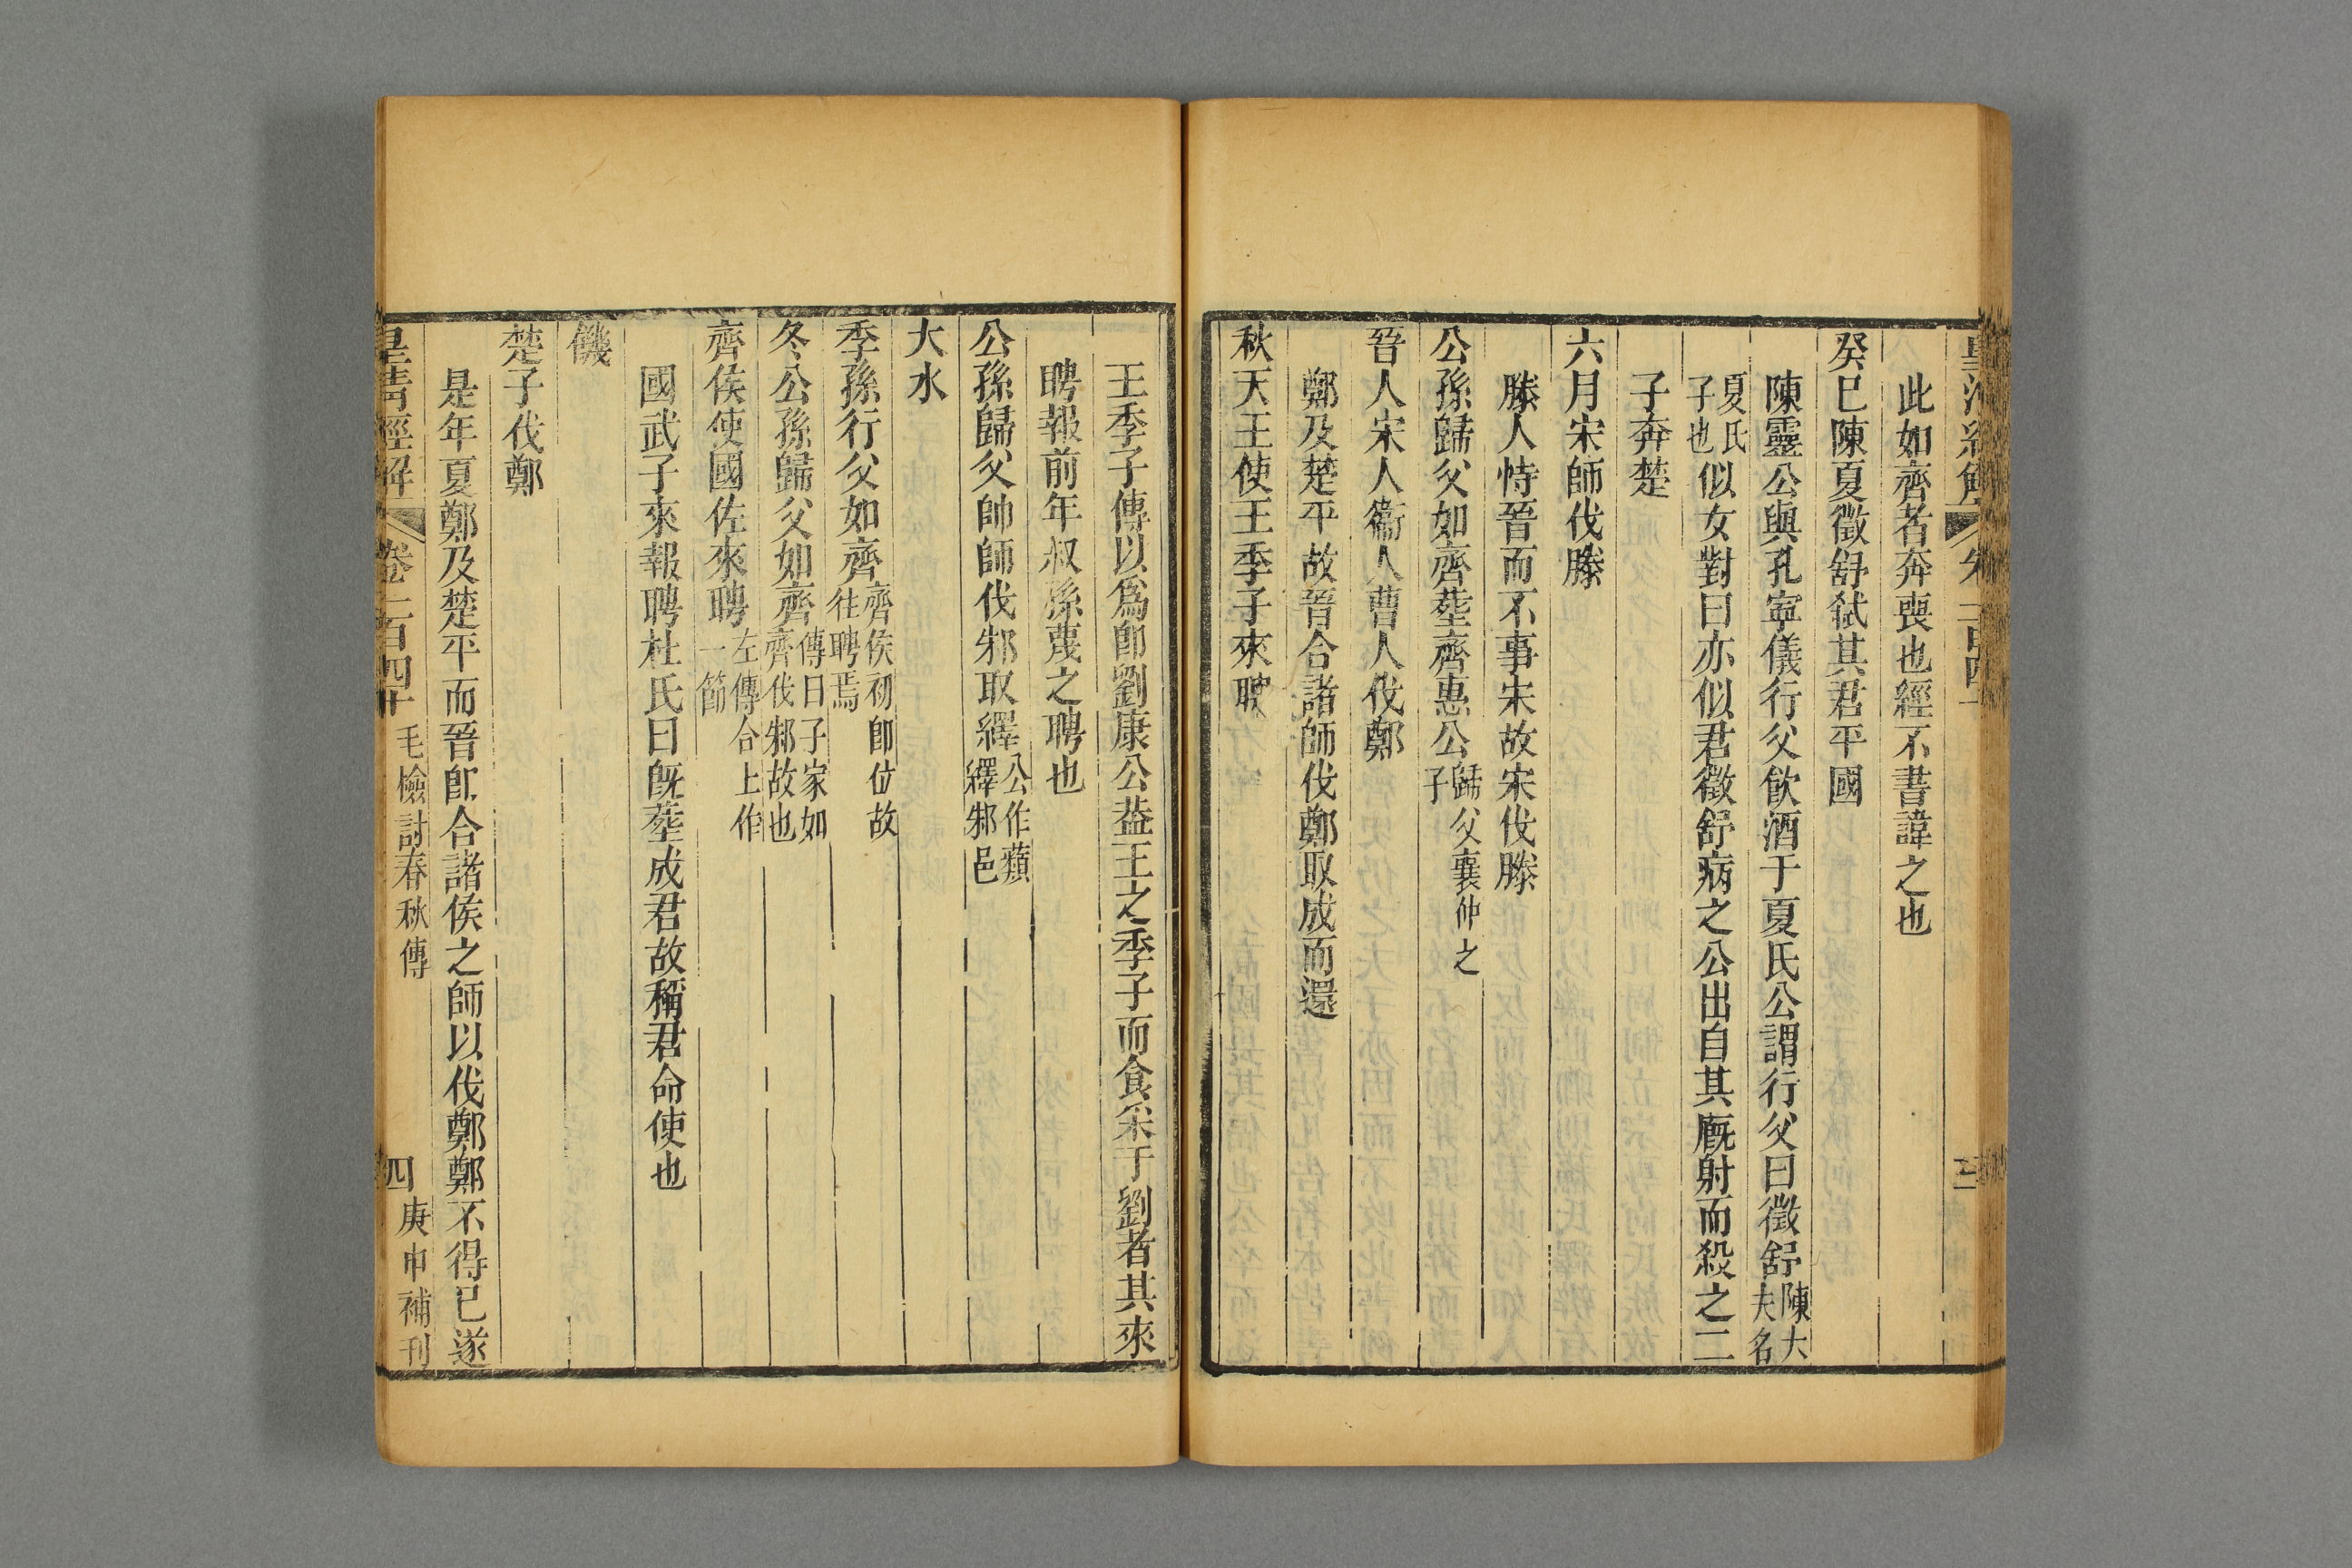 此如齊者奔喪也經不書諱之也
癸巳陳夏徵舒弑其君平國
陳靈公與孔寧儀行父飲酒于夏氏公謂行父曰徵舒陳大夫名
夏氏子也似女對曰亦似君徵舒病之公出自其廐射而殺之二
子奔楚
六月宋師伐滕
滕人恃晉而不事宋故宋伐滕
公孫歸父如齊葬齊惠公歸父襄仲之子
晉人宋人衞人曹人伐鄭
鄭及楚平故晉合諸師伐鄭取成而還
秋天王使王季子來聘
王季子傳以爲卽劉康公葢王之季子而食采于劉者其來
聘報前年叔孫蔑之聘也
公孫歸父帥師伐邾取繹公作蘱繹邾邑
大水
季孫行父如齊齊侯初卽位故往聘焉
冬公孫歸父如齊傳曰子家如齊伐邾故也
齊侯使國佐來聘左傳合上作一節
國武子來報聘杜氏曰旣葬成君故稱君命使也
饑
楚子伐鄭
是年夏鄭及楚平而晉卽合諸侯之師以伐鄭鄭不得已遂
皇清經解 卷一百四十 毛檢討春秋傳 四 庚申補刊